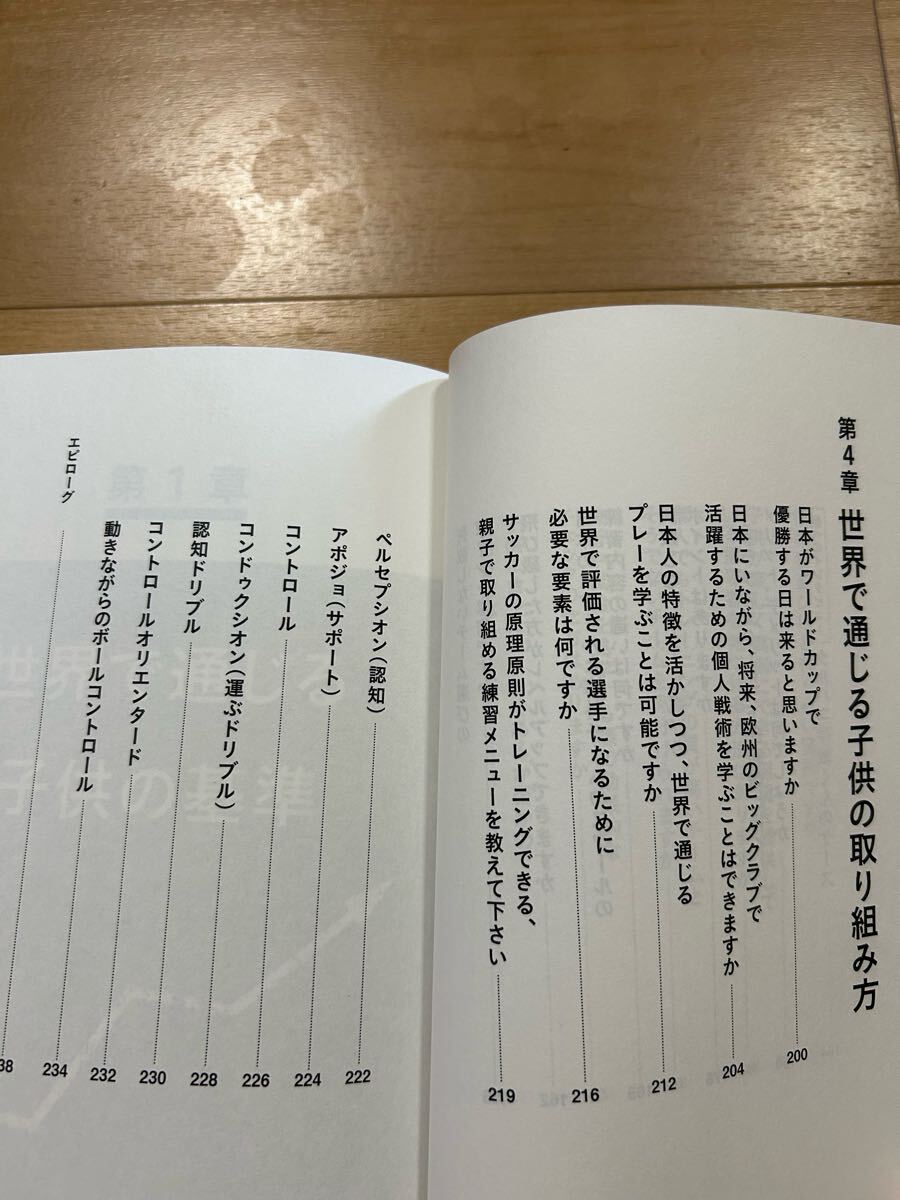 第4章 世界で通じる子供の取り組み方
日本がワールドカップで
優勝する日は来ると思いますか 200
日本にいながら、将来、欧州のビッグクラブで
活躍するための個人戦術を学ぶことはできますか 204
日本人の特徴を活かしつつ、世界で通じる
プレーを学ぶことは可能ですか 212
世界で評価される選手になるために
必要な要素は何ですか 216
サッカーの原理原則がトレーニングできる、
親子で取り組める練習メニューを教えて下さい 219
ペルセプシオン（認知） 222
アポジョ（サポート） 224
コントロール 226
コンドゥクシオン（運ぶドリブル） 228
認知ドリブル 230
コントロールオリエンタード 232
動きながらのボールコントロール 234
エピローグ 38
第1章
世界で通じ
子供の基準